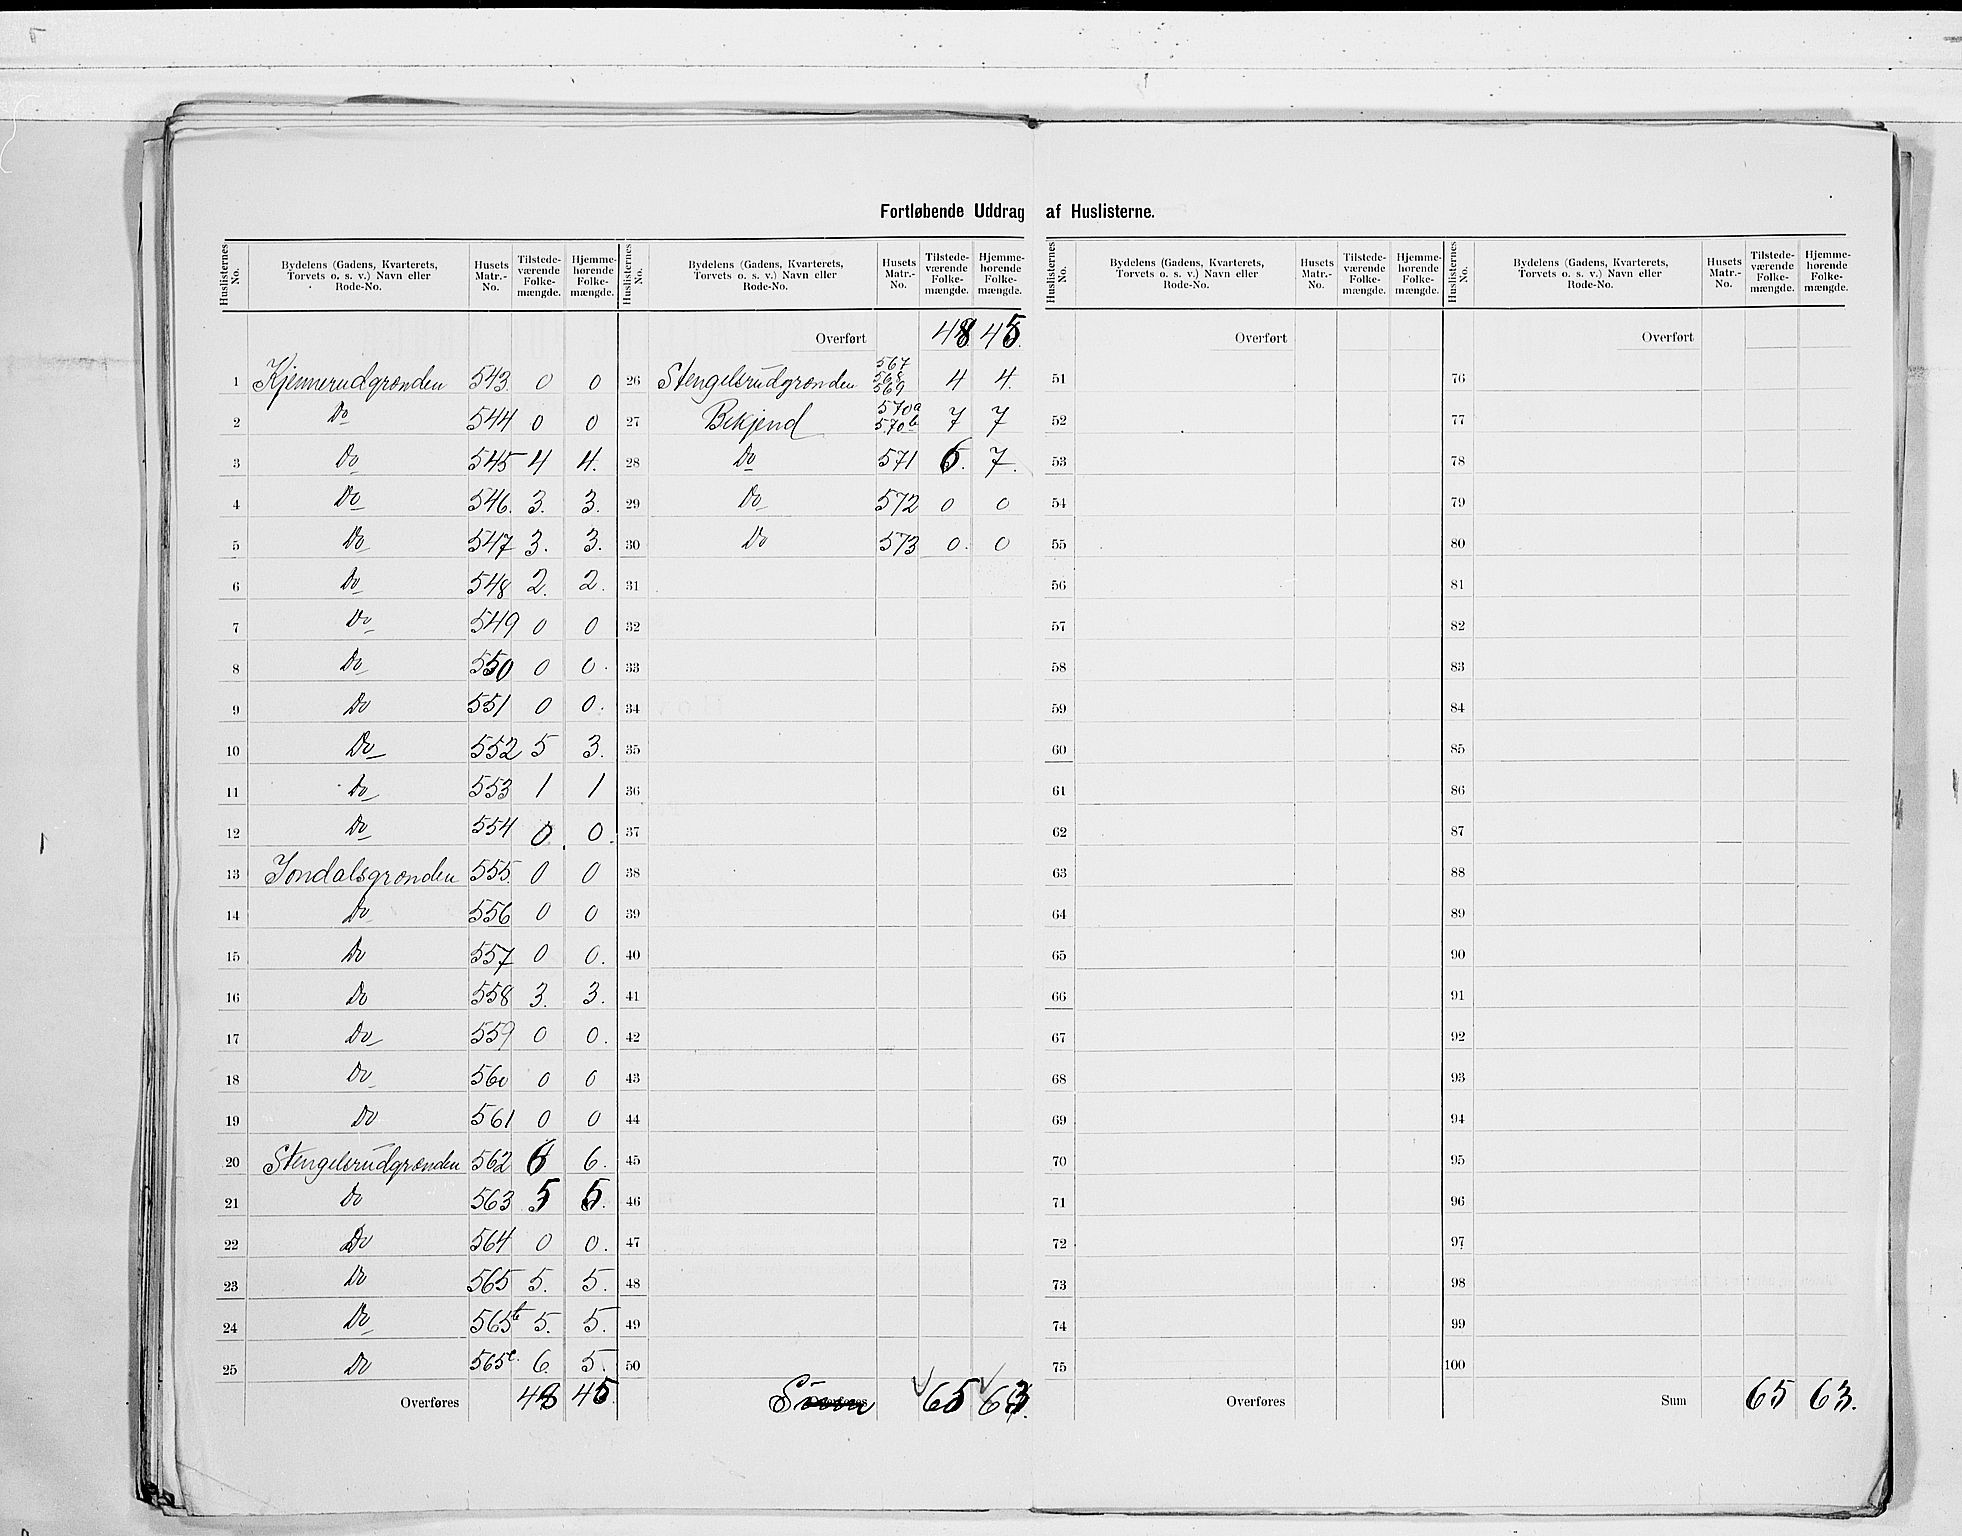 Fortløbende Uddrag af Huslisterne.
Huslisternes No. Bydelens (Gadens, Kvarterets, Torvets o. s. v.) Navn eller Rode-No. Husets Matr.-No. Tilstede-værende Folke-mængde. Hjemme-hørende Folke-mængde.
1 Kjennerudgrænden 543 0 0
2 Do 544 0 0
3 Do 545 4 4.
4 Do 546. 3. 3.
5 Do 547 3. 3.
6 Do 548 2. 2.
7 Do 549 0 0
8 Do 550 0 0.
9 Do 551 0 0.
10 Do 552 5 3.
11 Do 553 1 1
12 Do 554 0 0.
13 Jondalsgrænden 555 0 0
14 Do 556 0 0
15 Do 557 0 0.
16 Do 558 3. 3.
17 Do 559 0 0.
18 Do 560 0 0
19 Do 561 0 0
20 Stengelsrudgrænden 562 6 6.
21 Do 563 5 5.
22 Do 564 0 0.
23 Do 565 5. 5.
24 Do 565b 5. 5.
25 Do 565c. 6 5.
Overføres 48 45.
Huslisternes No. Bydelens (Gadens, Kvarterets, Torvets o. s. v.) Navn eller Rode-No. Husets Matr.-No. Tilstede-værende Folke-mængde. Hjemme-hørende Folke-mængde.
Overført 48 45.
26 Stengelsrudgrænden 567 568 569 4 4.
27 Bekjend 570a 570b 7 7
28 Do 571 6. 7.
29 Do 572 0 0
30 Do 573 0. 0
31
32
33
34
35
36
37
38
39
40
41
42
43
44
45
46
47
48
49
50
Overføres Sum 65 63.
Huslisternes No. Bydelens (Gadens, Kvarterets, Torvets o. s. v.) Navn eller Rode-No. Husets Matr.-No. Tilstede-værende Folke-mængde. Hjemme-hørende Folke-mængde.
Overført
51
52
53
54
55
56
57
58
59
60
61
62
63
64
65
66
67
68
69
70
71
72
73
74
75
Overføres
Huslisternes No. Bydelens (Gadens, Kvarterets, Torvets o. s. v.) Navn eller Rode-No. Husets Matr.-No. Tilstede-værende Folke-mængde. Hjemme-hørende Folke-mængde.
Overført
76
77
78
79
80
81
82
83
84
85
86
87
88
89
90
91
92
93
94
95
96
97
98
99
100
Sum 65 63.